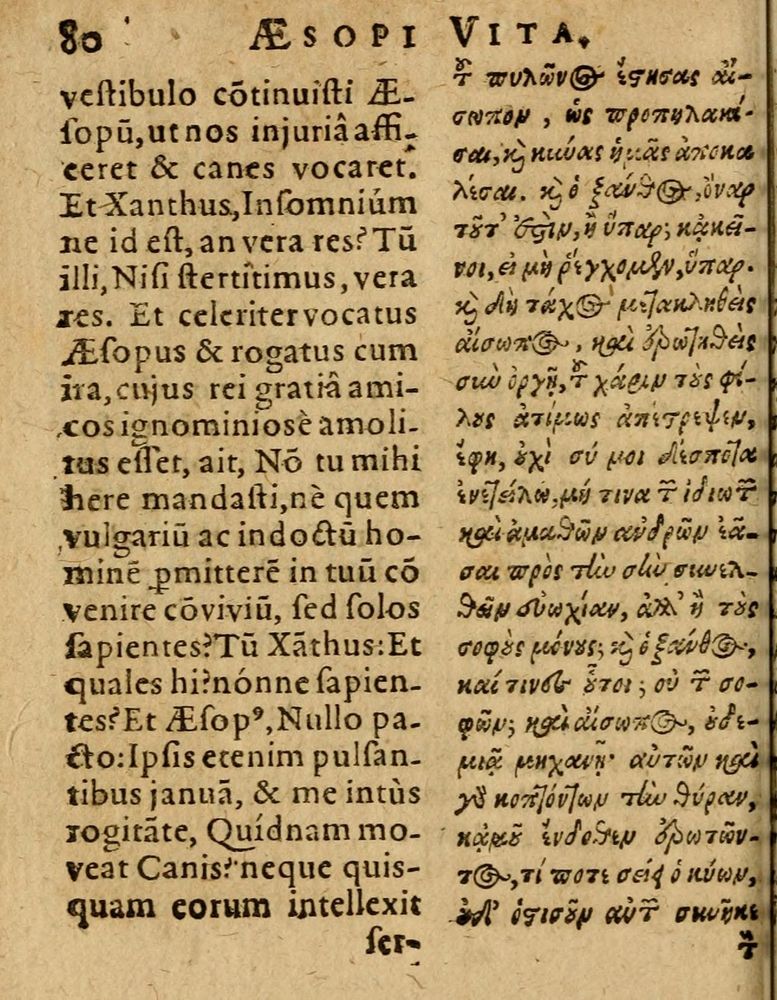 80 ÆSOPI VITA.
vestibulo cõtinuisti Æ-
sopũ, ut nos injuriâ affi-
ceret & canes vocaret.
Et Xanthus, Insomniúm
ne id est, an vera res? Tũ
illi, Nisi stertitimus, vera
res. Et celeriter vocatus
Æsopus & rogatus cum
ira, cujus rei gratiâ ami-
cos ignominiosè amoli-
tus esset, ait, Nõ tu mihi
here mandasti, nè quem
vulgariũ ac indoctũ ho-
minẽ ꝑmitterẽ in tuũ cõ
venire cõviviũ, sed solos
sapientes? Tũ Xãthus: Et
quales hi? nónne sapien-
tes? Et Æsopꝰ, Nullo pa-
cto: Ipsis etenim pulsan-
tibus januã, & me intùs
rogitãte, Quídnam mo-
veat Canis? neque quis-
quam eorum intellexit
ser-
τοῦ πυλῶνος ἔστησας αἴ-
σωπον, ὡς προπηλακί-
σαι, καὶ κύνας ἡμᾶς ἀποκα
λέσαι. καὶ ὁ ξάνθος, ὄναρ
τοῦτ' ἐστὶν, ἢ ὕπαρ; κἀκεῖ-
νοι, εἰ μὴ ῥέγχομεν, ὕπαρ.
καὶ δὴ τάχος μετακληθεὶς
αἴσωπος, καὶ ἐρωτηθεὶς
σὺν ὀργῇ, τοῦ χάριν τοὺς φί-
λους ἀτίμως ἀπέστρεψεν,
ἔφη, οὐχὶ σύ μοι δέσποτα
ἐνετείλω, μή τινα τῶν ἰδιωτῶν
καὶ ἀμαθῶν ἀνδρῶν ἐᾶ-
σαι πρὸς τὴν σὴν συνελ-
θεῖν εὐωχίαν, ἀλλ' ἢ τοὺς
σοφοὺς μόνους; καὶ ὁ ξάνθος,
καί τινες οὗτοι; οὐ τῶν σο-
φῶν; καὶ αἴσωπος, οὐδε-
μιᾷ μηχανῇ· αὐτῶν καὶ
γὰρ κοπτόντων τὴν θύραν,
κἀμοῦ ἔνδοθεν ἐρωτῶν-
τος, τί ποτε σείει ὁ κύων,
οὐδ' ὁστισοῦν αὐτῶν συνῆκε
τὸν